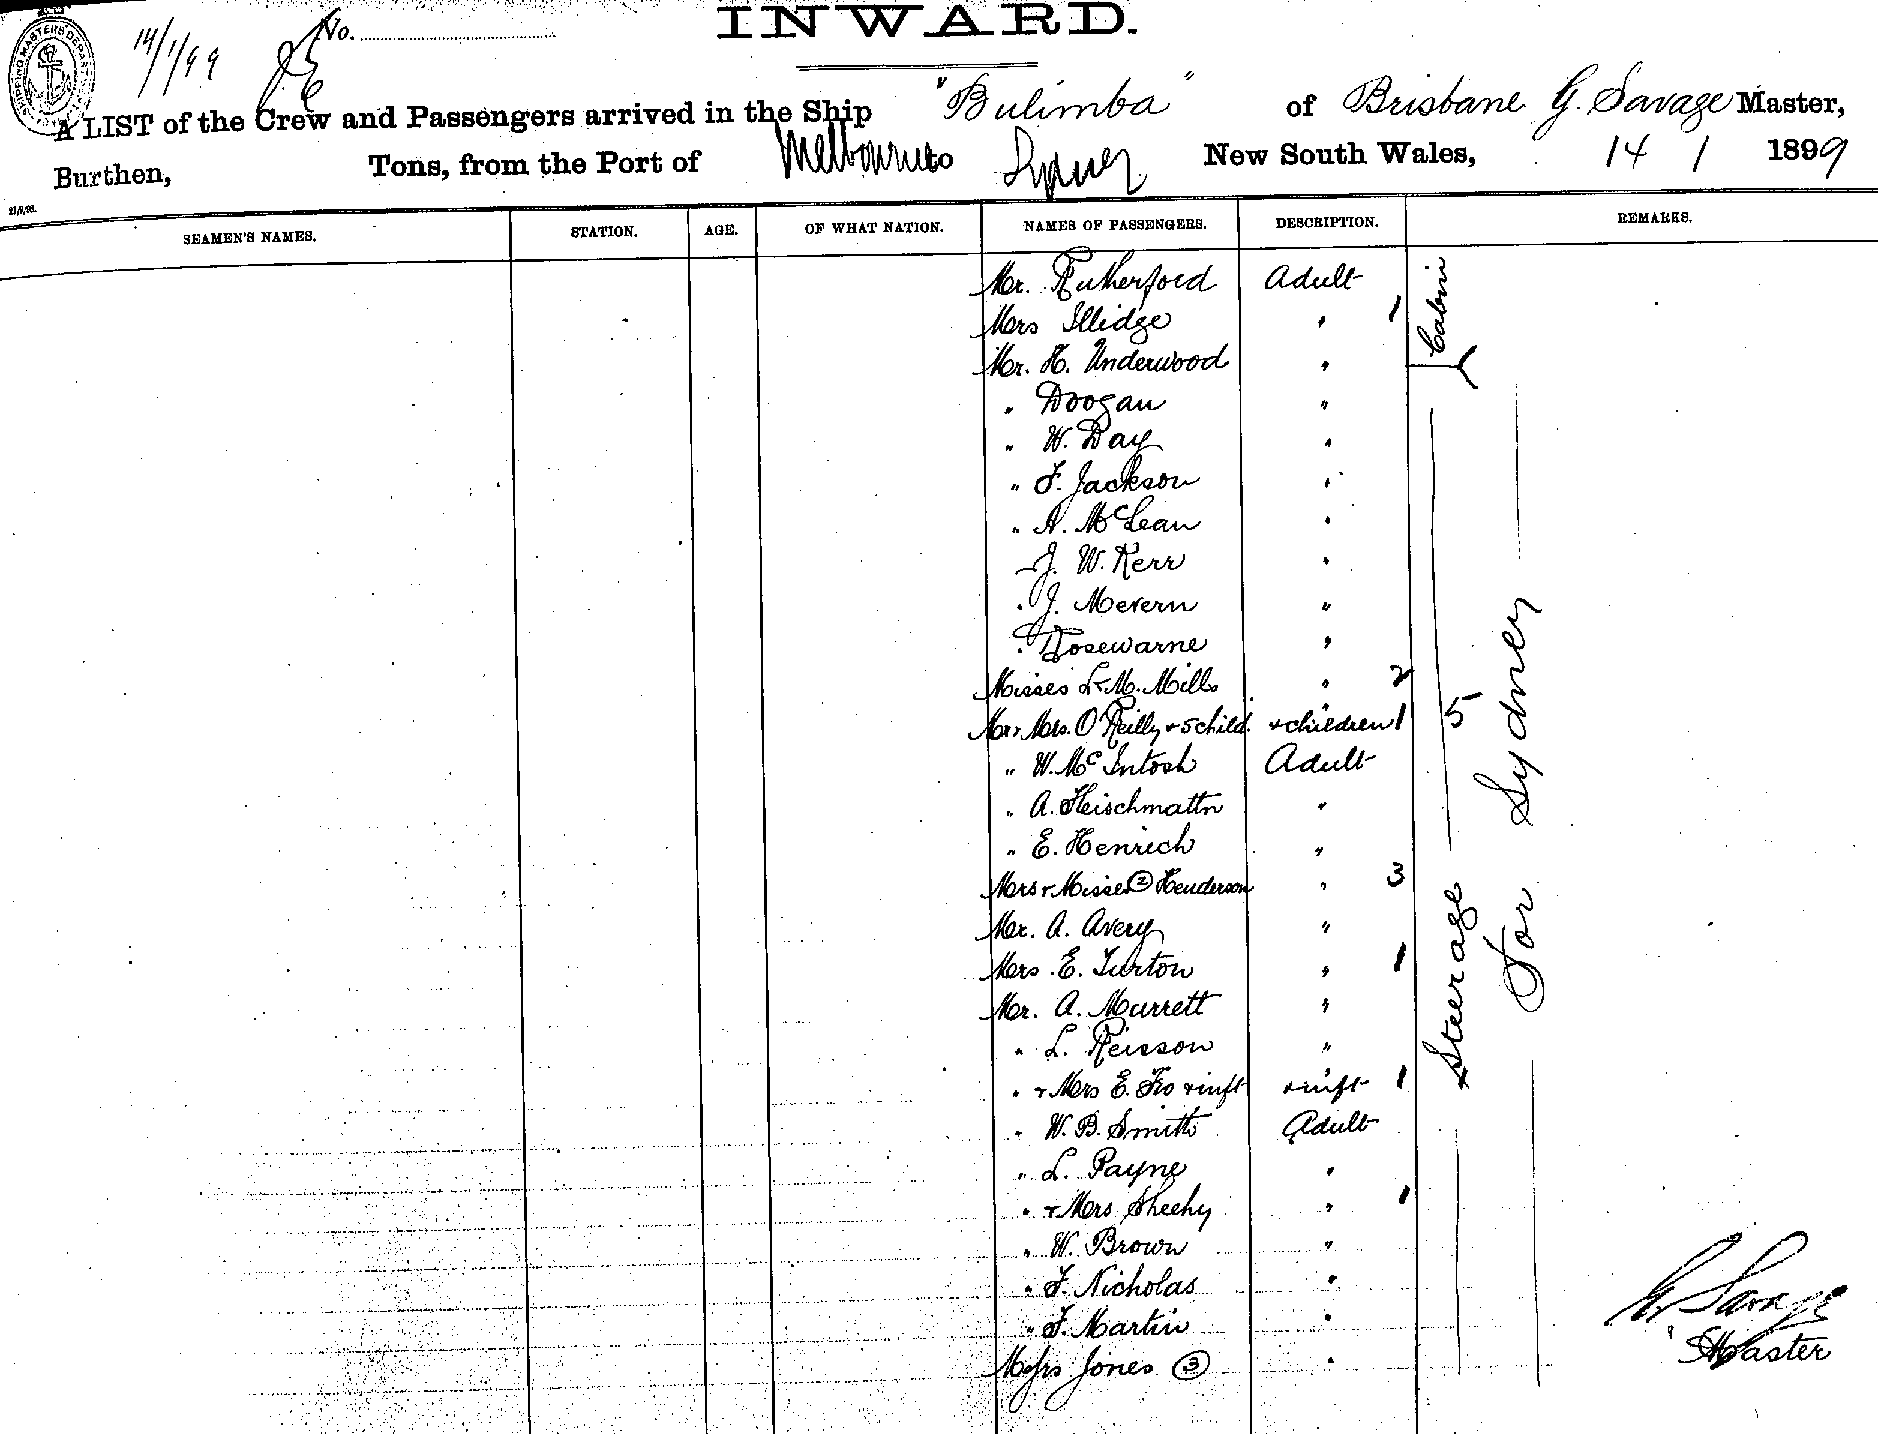 INWARD.
No.
14/1/99
SHIPPING MASTER'S DEPART
A LIST of the Crew and Passengers arrived in the Ship "Bulimba" of Brisbane G. Savage Master,
Burthen, Tons, from the Port of Melbourne to Sydney New South Wales, 14 1 1899
21/9/98.
SEAMEN'S NAMES. STATION. AGE. OF WHAT NATION. NAMES OF PASSENGERS. DESCRIPTION. REMARKS.
Mr. Rutherford Adult
Mrs Illidge " 1
Mr. H. Underwood "
Cabin
" Doogan "
" W. Day "
" F. Jackson "
" A. McLean "
J. W. Kerr "
" J. Mevern "
" Rosewarne "
Misses L & M. Mills " 2
Mr & Mrs. O'Reilly & 5 child. & children 1 5
" W. McIntosh Adult
" A. "
" E. Henrich "
Mrs & Misses (2) Henderson " 3
Mr. A. Avery "
Mrs. E. Turton " 1
Mr. A. Murrett "
" L. Reisson "
" & Mrs E. & inft & inft 1
" W. B. Smith Adult
" L. Payne "
" & Mrs Sheehy " 1
" W. Brown "
" F. Nicholas "
" F. Martin "
Messrs Jones (3) "
Steerage
For Sydney
G. Savage
Master